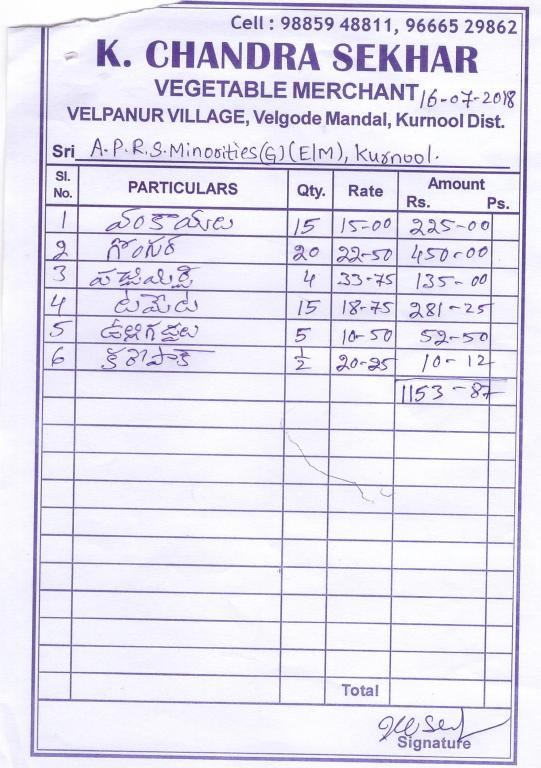 Cell : 98859 48811, 96665 29862
K. CHANDRA SEKHAR
VEGETABLE MERCHANT 16-07-2018
VELPANUR VILLAGE, Velgode Mandal, Kurnool Dist.
Sri A.P.R.S. Minorities (G) (E/M), Kurnool.
Sl. No. PARTICULARS Qty. Rate Amount Rs. Ps.
1 వంకాయలు 15 15-00 225-00
2 గోంగూర 20 22-50 450-00
3 పచ్చిమిర్చి 4 33-75 135-00
4 టమేట 15 18-75 281-25
5 ఉల్లిగడ్డలు 5 10-50 52-50
6 కరేపాక్ ½ 20-25 10-12
1153-87
Total
Signature